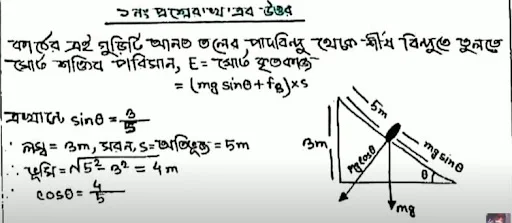 ১নং প্রশ্নের 'খ' এর উত্তর
কাঠের এই গুড়িটি আনত তলের পাদবিন্দু থেকে শীর্ষ বিন্দুতে তুলতে
মোট শক্তির পরিমান, E = মোট কৃতকাজ
= (mg sinθ + fk) × s
এখানে sinθ = 3/5
∴ লম্ব = 3m, সরন, s = অতিভুজ = 5m
∴ ভূমি = √5² - 3² = 4m
∴ cosθ = 4/5
5m
3m
mg cosθ
mg sinθ
θ
mg